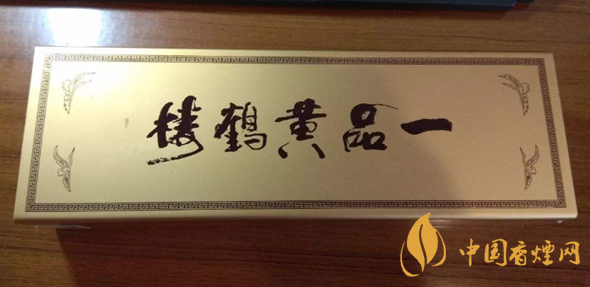 一品黄鹤楼
中国香烟网